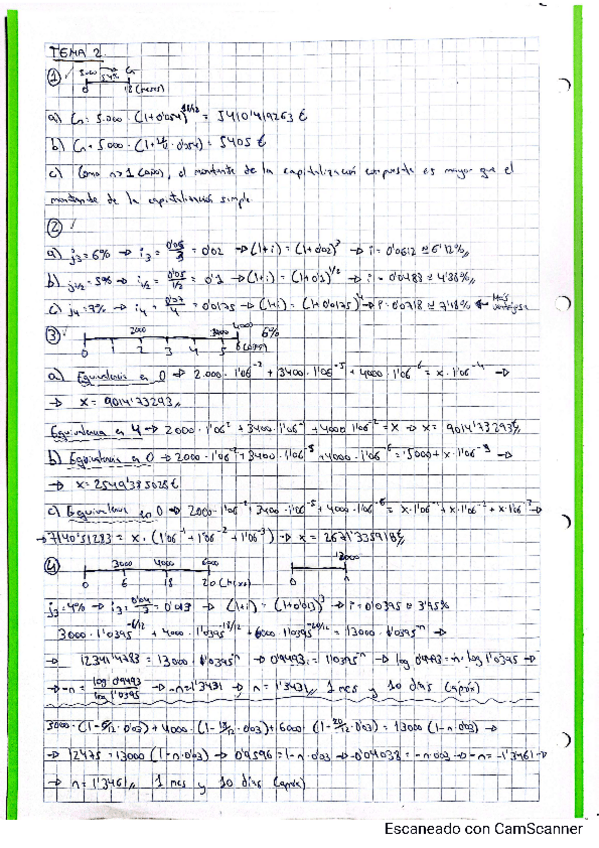 TEMA 2.
① 5.000 5'4% Cn
0 18 (meses)
a) Cn = 5.000 · (1+0'054)^18/12 = 5410'419263 €
b) Cn = 5000 · (1+ · 0'054) = 5405 €
c) Como n>1 (año), el montante de la capitalización compuesta es mayor que el
montante de la capitalización simple.
②
a) j3=6% → i3 = 0'06/3 = 0'02 → (1+i) = (1+0'02)^3 → i = 0'0612 ≅ 6'12%
b) j1/2 = 5% → i1/2 = 0'05/1/2 = 0'1 → (1+i) = (1+0'1)^1/2 → i = 0'0483 ≅ 4'88%
c) j4=7% → i4 = 0'07/4 = 0'0175 → (1+i) = (1+0'0175)^4 → i = 0'0718 ≅ 7'18% ← Más
③ 2000 4000 6%
0 1 2 3 4 5 6
a) Equivalencia en 0 → 2.000 · 1'06^-2 + 3400 · 1'06^-5 + 4000 · 1'06^-6 = x · 1'06^-4 →
→ x = 9014'73293
Equivalencia en 4 → 2000 · 1'06^2 + 3400 · 1'06^-1 + 4000 1'06^-2 = x → x = 9014'73293
b) Equivalencia en 0 → 2000 · 1'06^-2 + 3400 · 1'06^-5 + 4000 · 1'06^-6 = 5000 + x · 1'06^-3 →
→ x = 2549'385025 €
c) Equivalencia en 0 → 2000 · 1'06^-2 + 3400 · 1'06^-5 + 4000 · 1'06^-6 = x · 1'06^-1 + x · 1'06^-2 + x · 1'06^-3 →
→ 7140'51283 = x · (1'06^-1 + 1'06^-2 + 1'06^-3) → x = 2671'335918 €
④ 3000 4000 6000 13000
0 6 18 20 (meses) 0 n
j3=4% → i3 = 0'04/3 = 0'013 → (1+i) = (1+0'013)^3 → i = 0'0395 ≅ 3'95%
3000 · 1'0395^-6/12 + 4000 · 1'0395^-18/12 + 6000 · 1'0395^-20/12 = 13000 · 1'0395^-n →
→ 12341'4783 = 13000 · 1'0395^-n → 0'9493 = 1'0395^-n → log 0'9493 = -n · log 1'0395 →
→ -n = log 0'9493/log 1'0395 → -n = 1'3431 → n = 1'3431 1 mes y 10 días (aprox)
3000 · (1-6/12 · 0'03) + 4000 · (1-18/12 · 0'03) + 6000 · (1-20/12 · 0'03) = 13000 (1-n · 0'03) →
→ 12475 = 13000 (1-n · 0'03) → 0'9596 = 1-n · 0'03 → -0'04038 = -n · 0'03 → -n = -1'3461 →
→ n = 1'3461 1 mes y 10 días (aprox)
Escaneado con CamScanner